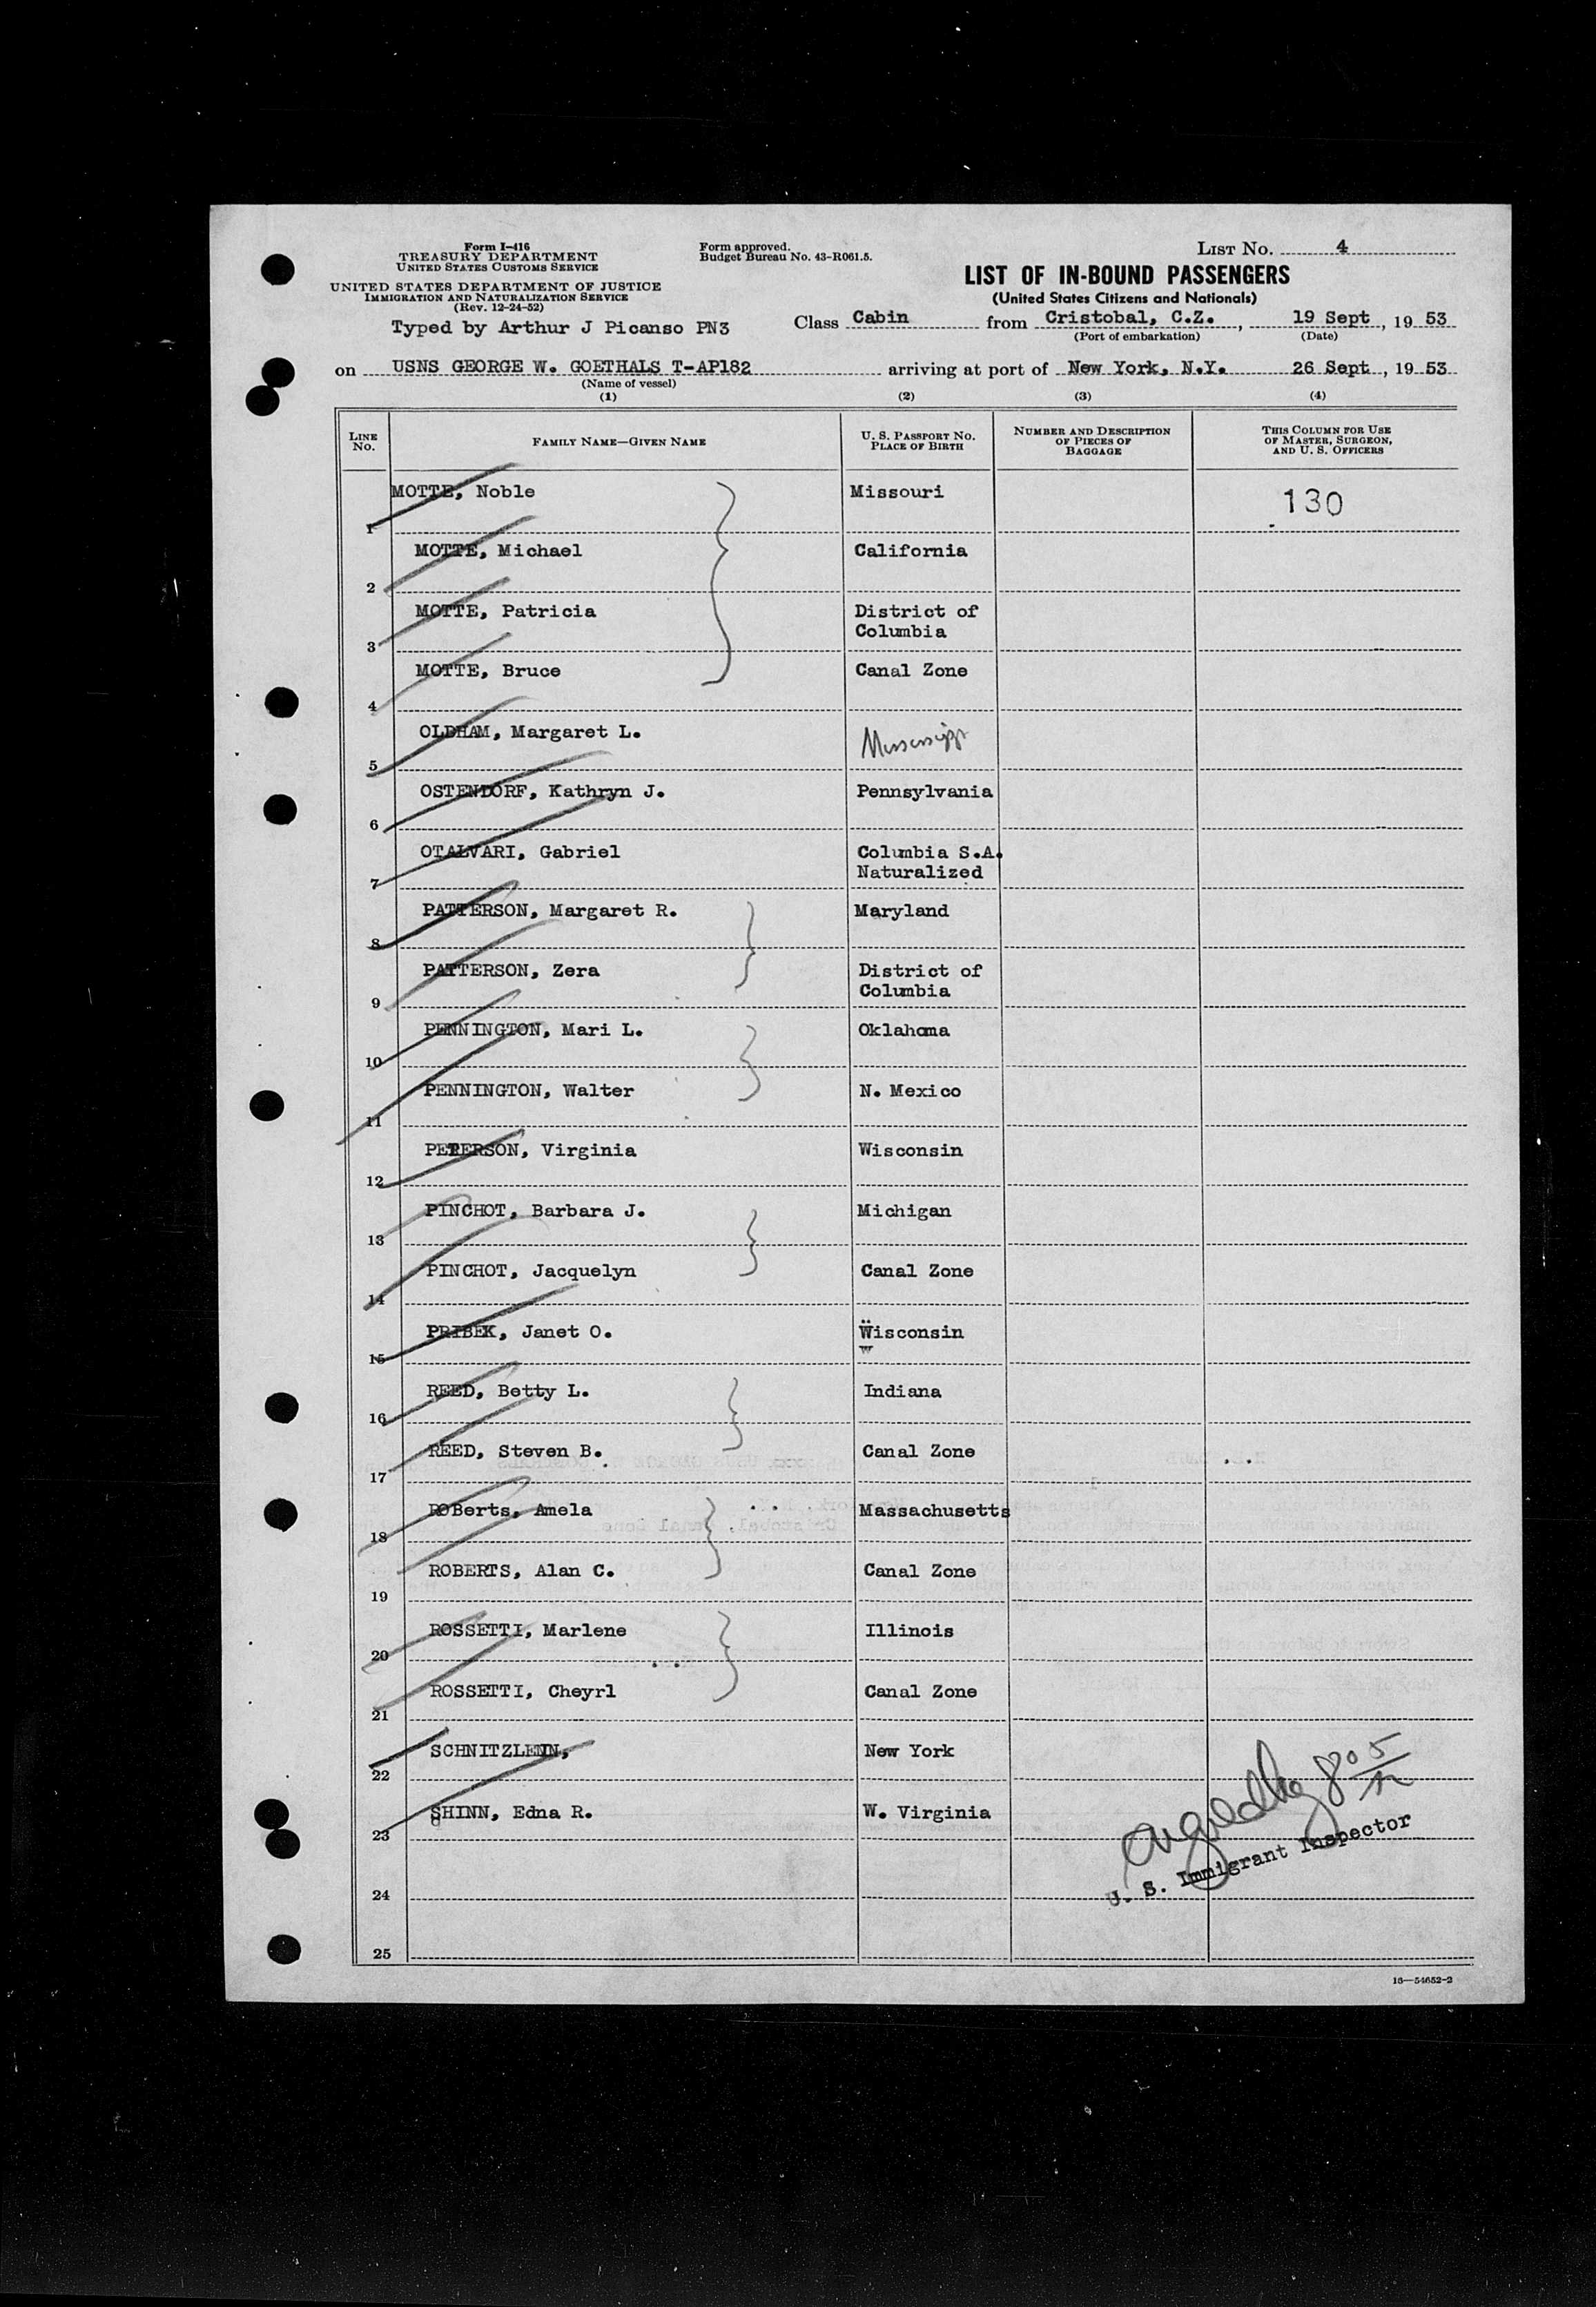 Form I-416
TREASURY DEPARTMENT
UNITED STATES CUSTOMS SERVICE
UNITED STATES DEPARTMENT OF JUSTICE
IMMIGRATION AND NATURALIZATION SERVICE
(Rev. 12-24-52)
Typed by Arthur J Picanso PN3
Form approved.
Budget Bureau No. 43-R061.5.
LIST No. 4
LIST OF IN-BOUND PASSENGERS
(United States Citizens and Nationals)
Class Cabin from Cristobal, C.Z., 19 Sept, 1953
(Port of embarkation) (Date)
on USNS GEORGE W. GOETHALS T-AP182 arriving at port of New York, N.Y. 26 Sept, 1953
(Name of vessel)
(1) (2) (3) (4)
LINE No. FAMILY NAME—GIVEN NAME U. S. PASSPORT NO. PLACE OF BIRTH NUMBER AND DESCRIPTION OF PIECES OF BAGGAGE THIS COLUMN FOR USE OF MASTER, SURGEON, AND U. S. OFFICERS
1 MOTTE, Noble Missouri 130
2 MOTTE, Michael California
3 MOTTE, Patricia District of Columbia
4 MOTTE, Bruce Canal Zone
5 OLDHAM, Margaret L. Mississippi
6 OSTENDORF, Kathryn J. Pennsylvania
7 OTALVARI, Gabriel Columbia S.A. Naturalized
8 PATTERSON, Margaret R. Maryland
9 PATTERSON, Zera District of Columbia
10 PENNINGTON, Mari L. Oklahoma
11 PENNINGTON, Walter N. Mexico
12 PETERSON, Virginia Wisconsin
13 PINCHOT, Barbara J. Michigan
14 PINCHOT, Jacquelyn Canal Zone
15 PRIBEK, Janet O. Wisconsin
16 REED, Betty L. Indiana
17 REED, Steven B. Canal Zone
18 ROBerts, Amela Massachusetts
19 ROBERTS, Alan C. Canal Zone
20 ROSSETTI, Marlene Illinois
21 ROSSETTI, Cheyrl Canal Zone
22 SCHNITZLENN, New York
23 SHINN, Edna R. W. Virginia
U. S. Immigrant Inspector
24
25
16—54652-2